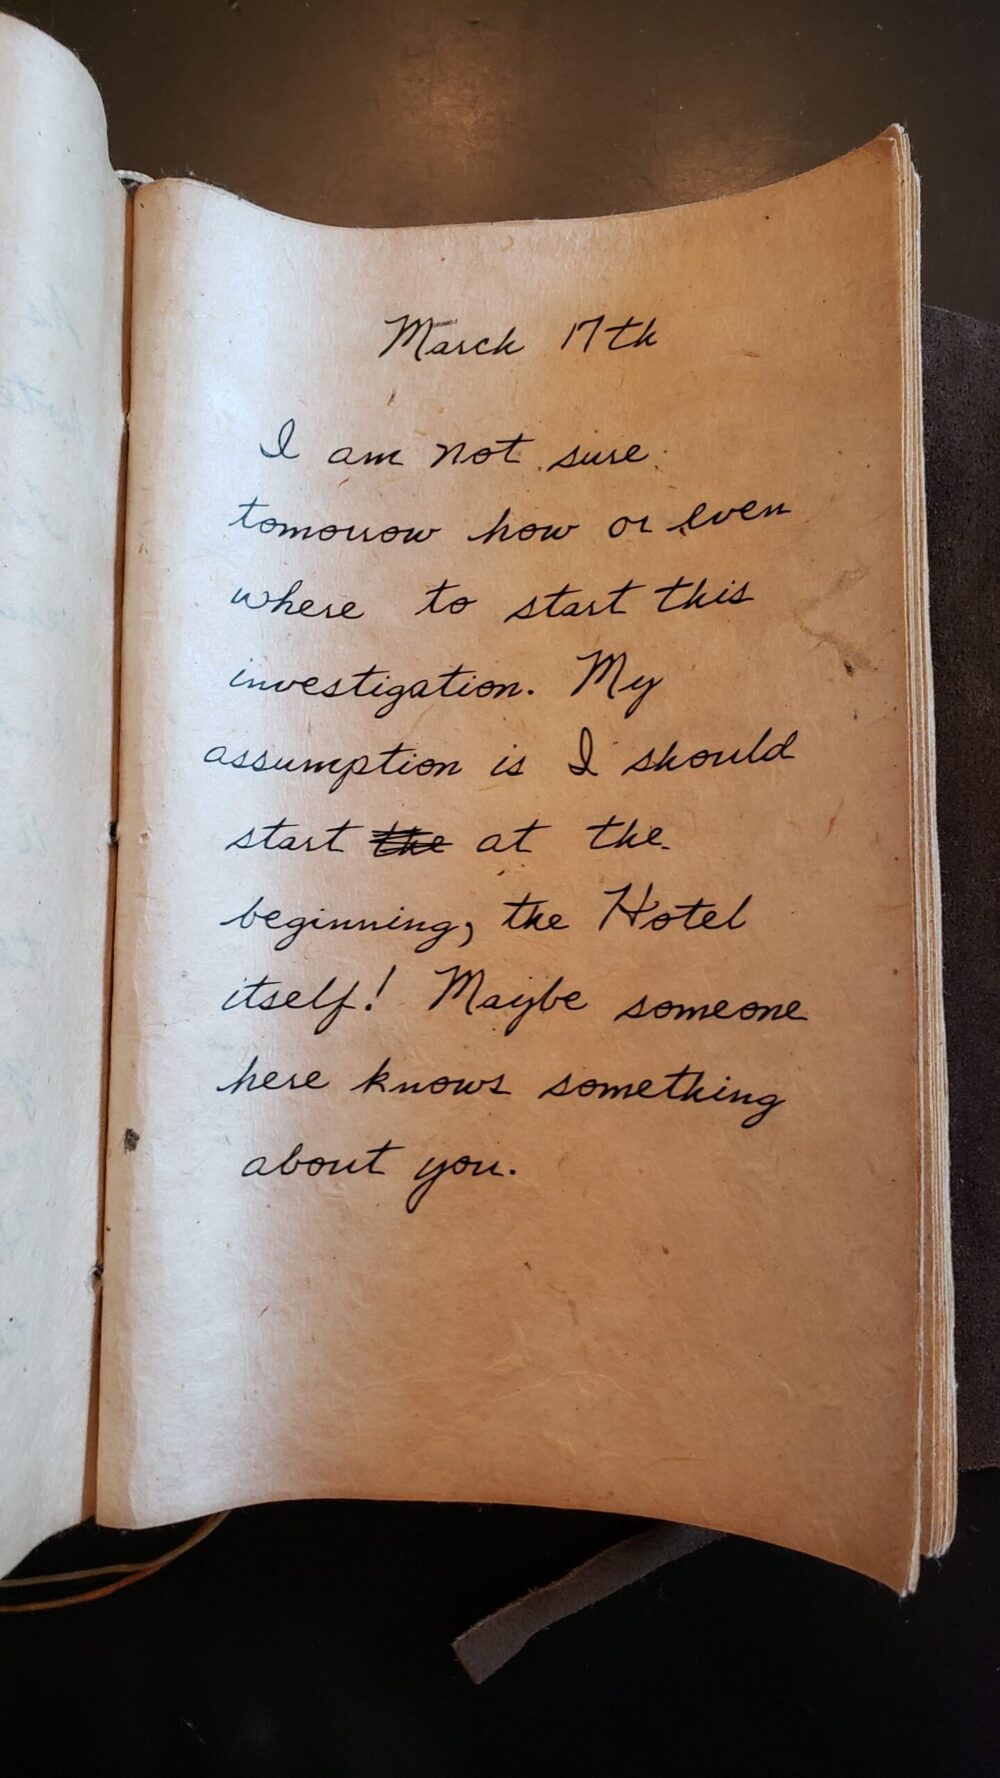 March 17th
I am not sure
tomorrow how or even
where to start this
investigation. My
assumption is I should
start the at the
beginning, the Hotel
itself! Maybe someone
here knows something
about you.